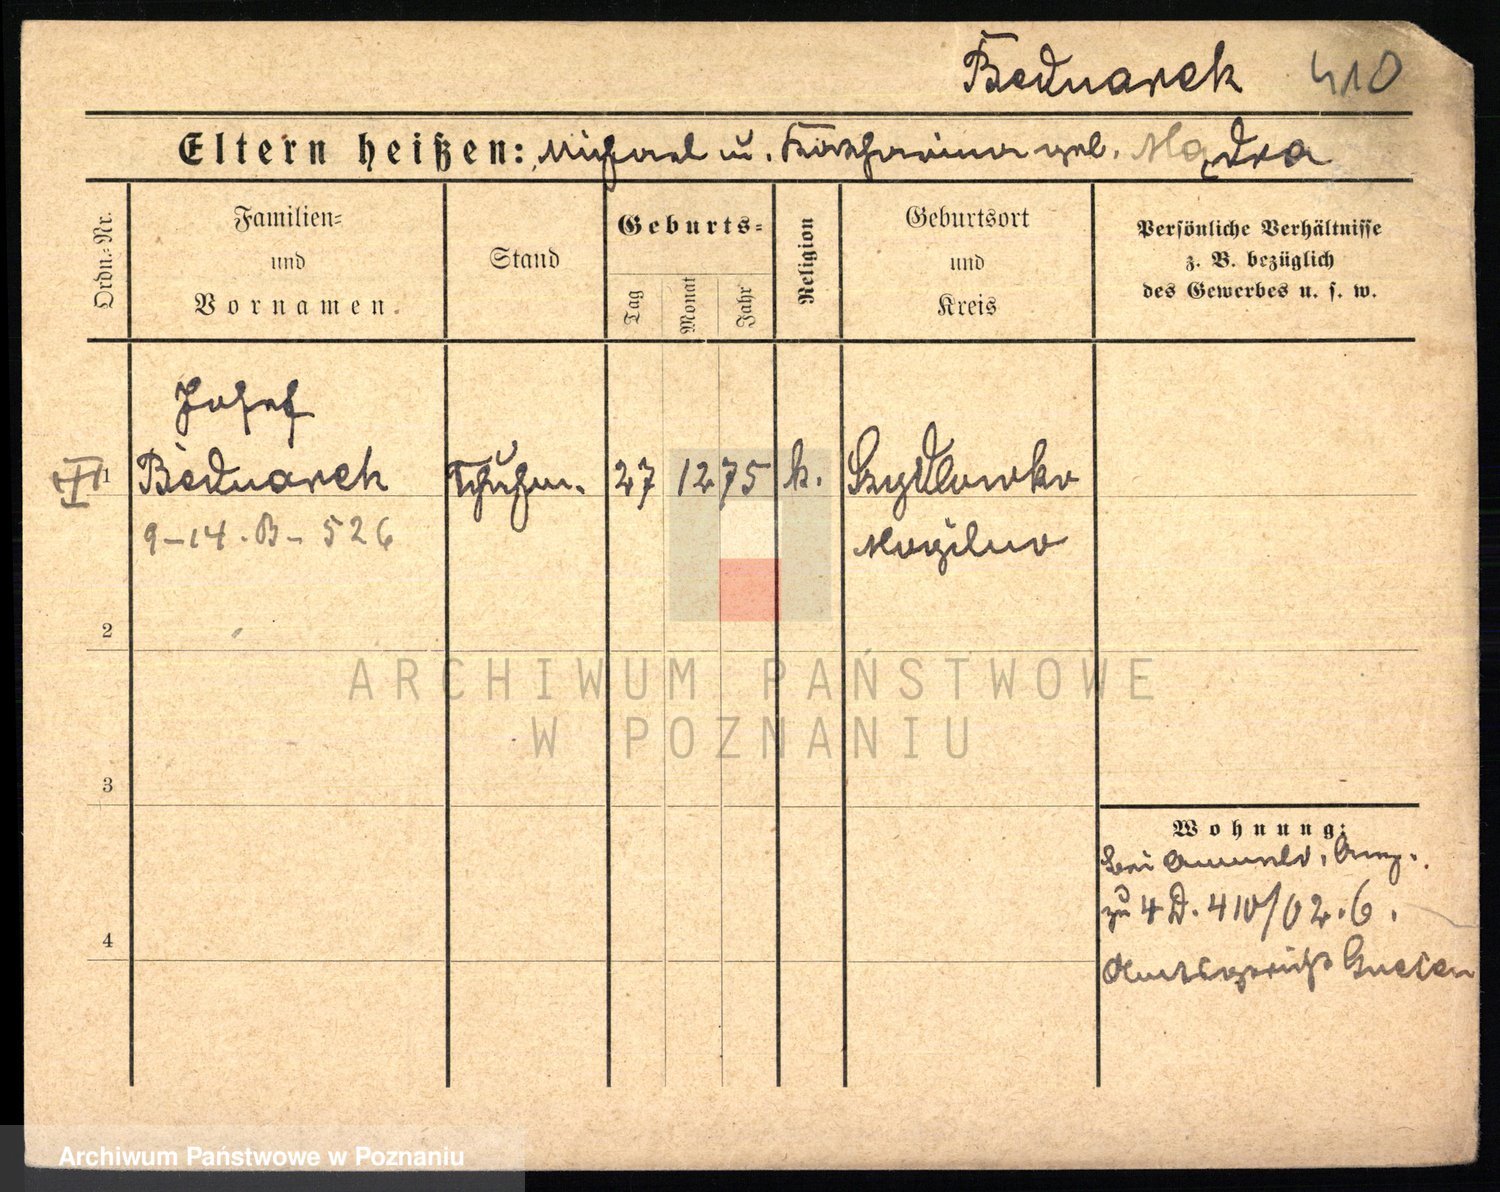 Bednarek 410
Eltern heißen: Michael u. Katharina geb. Mądra
Ordn.-Nr.
Familien=
und
Vornamen.
Stand
Geburts=
Tag
Monat
Jahr
Religion
Geburtsort
und
Kreis
Persönliche Verhältnisse
z. B. bezüglich
des Gewerbes u. s. w.
Josef
1 Bednarek 27 12 75 k. Szydlowko
9-14. B- 526 Mogilno
2
3
4
Wohnung:
bei
zu 4 D. 410/02. 6.
Amtsgericht Gnesen
ARCHIWUM PAŃSTWOWE
W POZNANIU
Archiwum Państwowe w Poznaniu